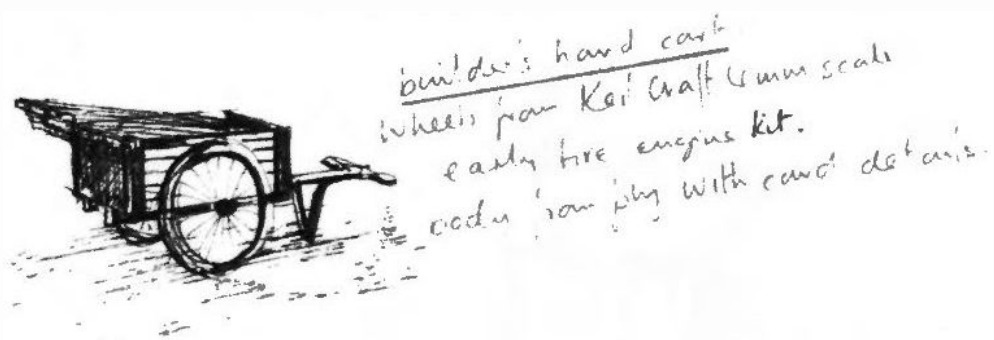 builder's hand cart
wheels from Keil Kraft 4mm scale
early fire engine kit.
body from ply with card details.